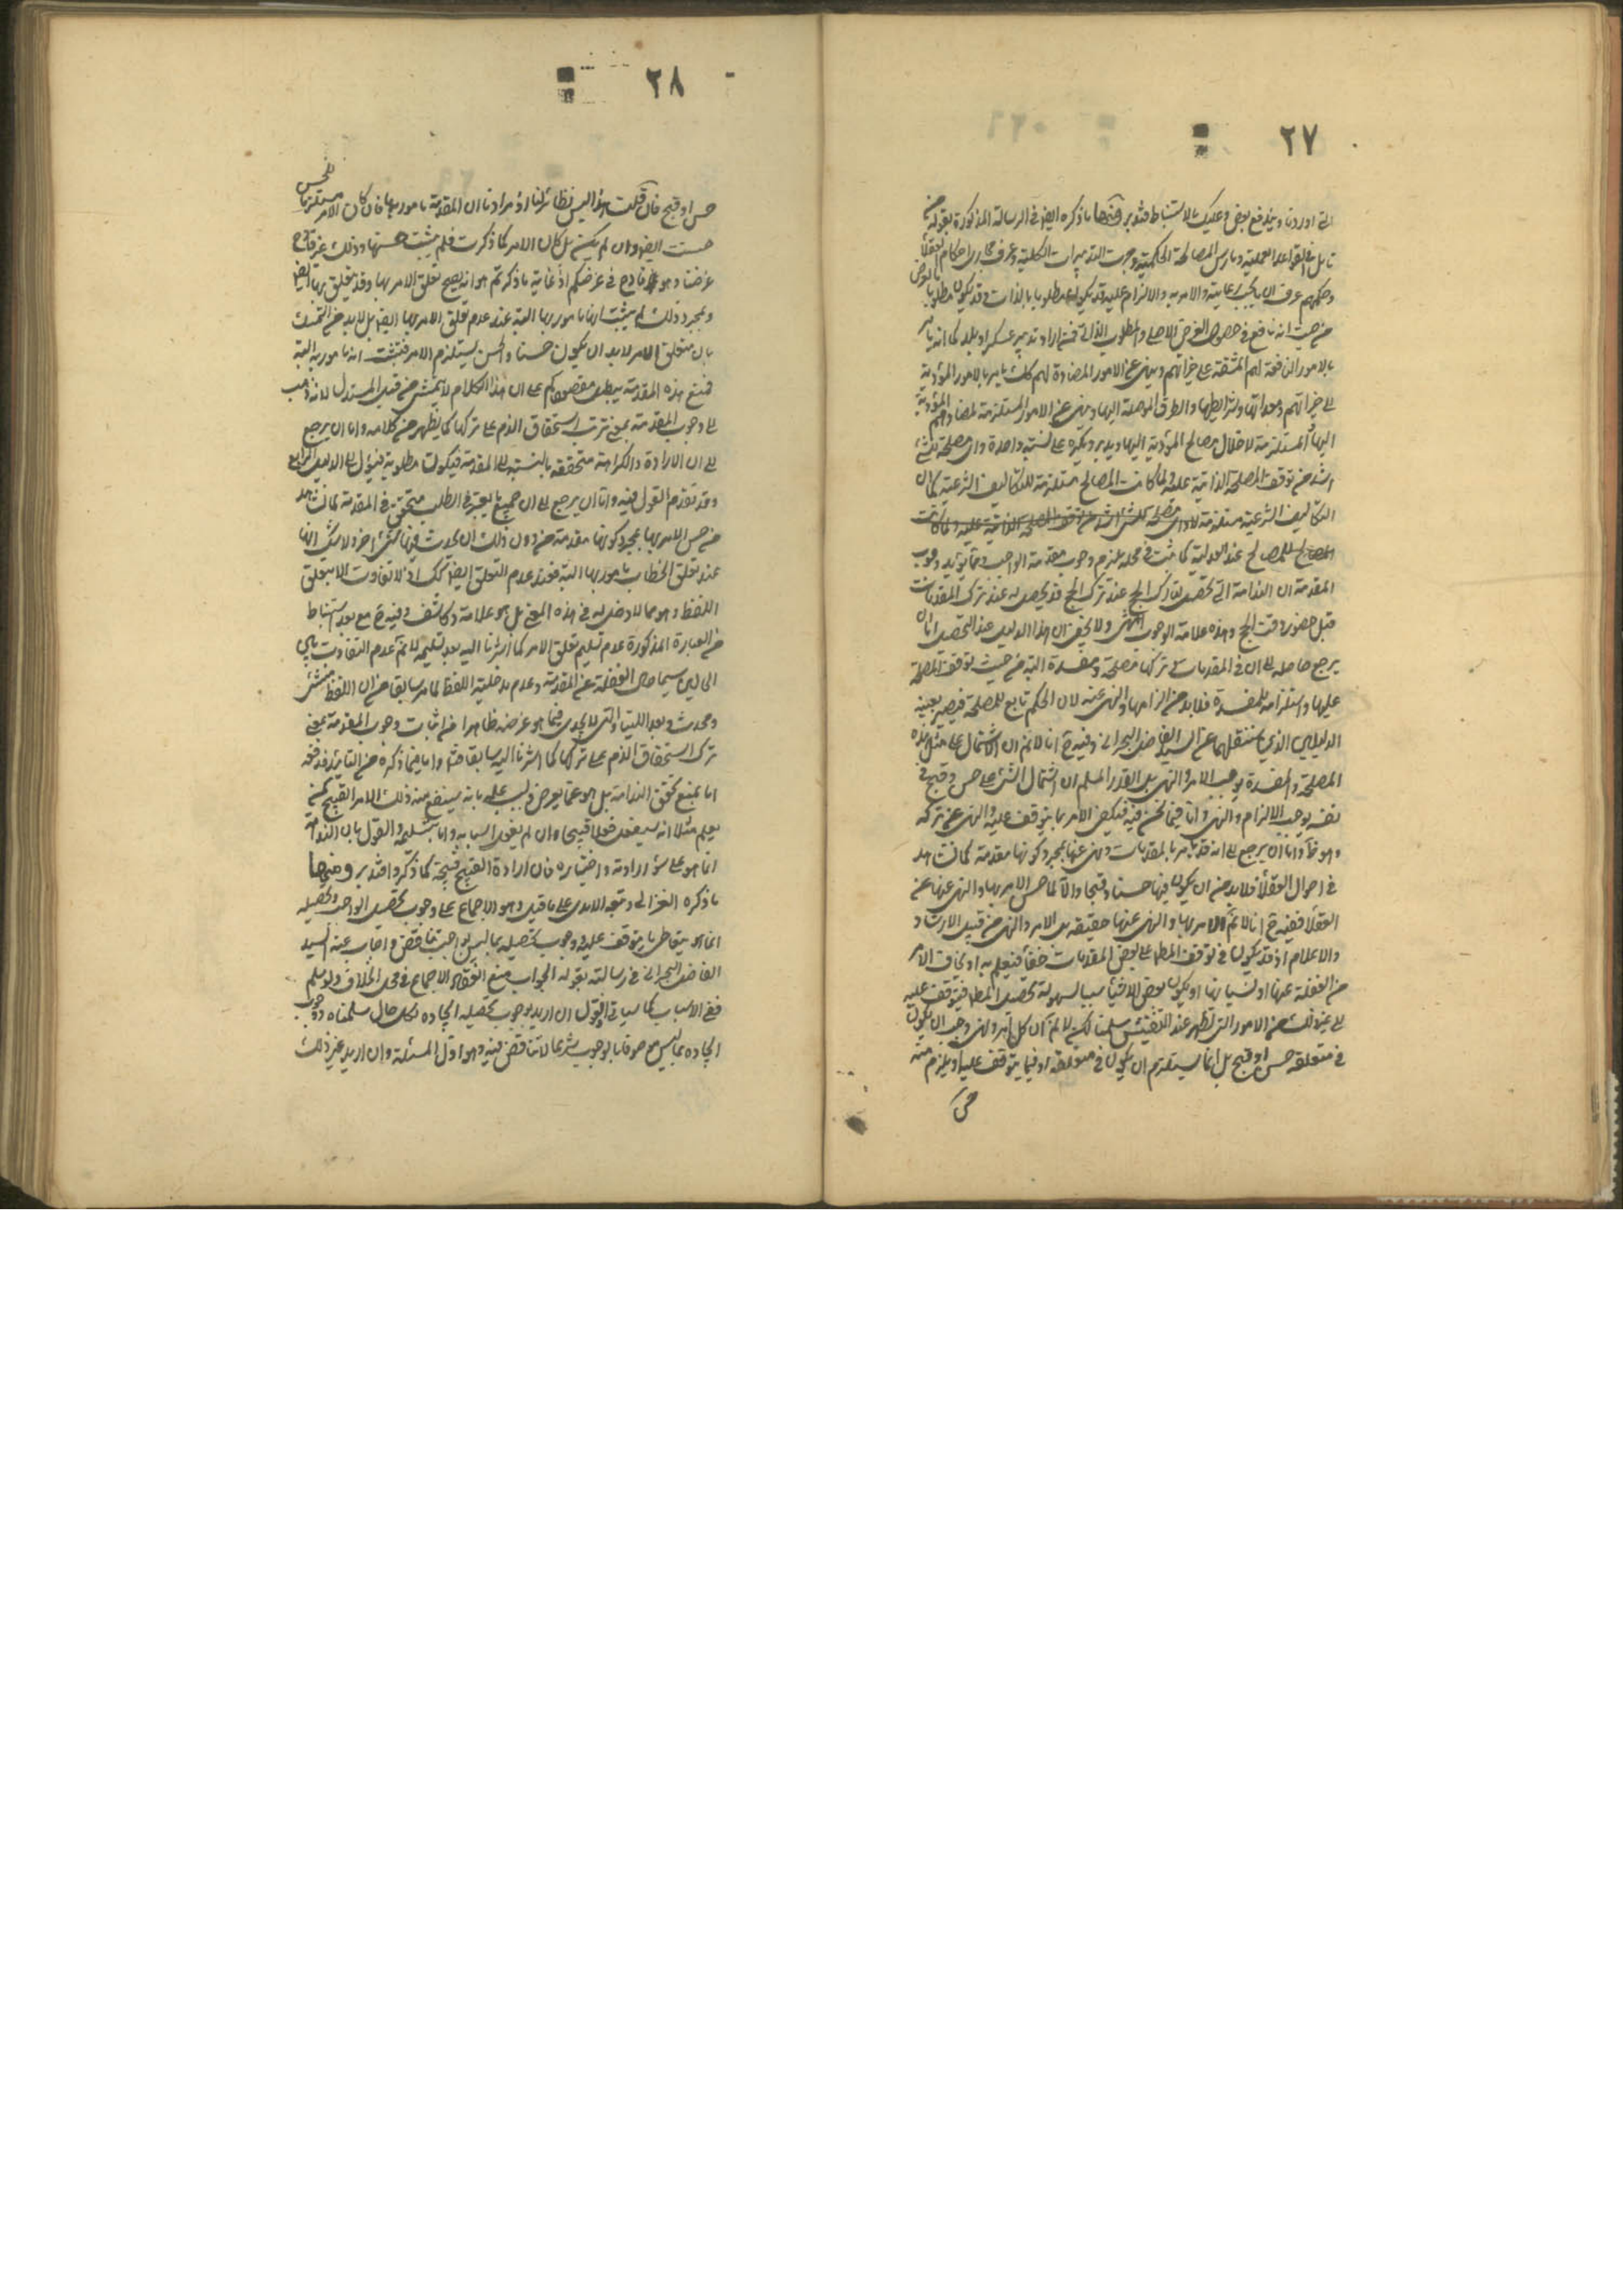 ٢٧
التي اوردنا ويندفع بعض وعليك بالاستنباط فتدبر ومنها ما ذكره ايضا في الرسالة المذكورة بقوله من
تامل في القواعد العملية ومارس المصالح الحكمية وجرت التدبيرات الكلية وعرف مجاري احكام العقلاء
وحكمهم عرف ان ما يجب رعايته والامر به والالزام عليه قد يكون مطلوبا بالذات وقد يكون مطلوبا بالعرض
من حيث انه نافع في حصول الغرض الاصلي والمطلوب الذاتي فمن اراد تدبير عسكر او بلد كما انه يامر
بالامور النافعة لهم المشتملة على خيراتهم وينهى عن الامور المضادة لهم كك يامر بالامور المؤدية
الى خيراتهم ومعداتها وشرايطها والطرق الموصلة اليها وينهى عن الامور المستلزمة لمضادهم المؤدية
اليها المستلزمة لاختلال مصالح المؤدية اليها ويدبر ويكره على نسبة واحدة واي مصلحة للشئ
اشد من توقف المصلحة الذاتية عليه ولما كانت المصالح مستلزمة للتكاليف الشرعية كما ان
التكاليف الشرعية مستلزمة لاداي مصلحة للشئ اشد من توقف المصلحة الذاتية عليه ولما كانت
المصالح للمصالح عند العدلية كما ثبت في محله يلزم وجوب مقدمة الواجب ومما يؤيد وجوب
المقدمة ان الندامة التي تحصل لتارك الحج عند ترك الحج قد يحصل له عند ترك المقدمات
قبل حضور وقت الحج وهذه علامة الوجوب انتهى ولا يخفى ان هذا الدليل عند التحصيل اما ان
يرجع حاصله الى ان في المقدمات في تركها مصلحة ومفسدة البتة من حيث توقف المصلحة
عليها واستلزامه للمفسدة فلا بد من الزامها والنهي عنه لان الحكم تابع للمصلحة فيصير بعينه
الدليل الذي سننقلهما عن السيد الفاضل البحراني وفيه ح انا لا نم ان الاشتمال على مثل هذه
المصلحة والمفسدة يوجب الامر والنهي بل القدر المسلم ان اشتمال الشئ على حسن وقبح في
نفسه يوجب الالزام والنهي واما فيما نحن فيه فيكفي الامر بما يتوقف عليه والنهي عن تركه
وهو ظ واما ان يرجع الى انه قد يامر بالمقدمات وينهى عنها بمجرد كونها مقدمة كما نشاهد
في احوال العقلاء فلا بد من ان يكون فيها حسنا وقبحا والا لما حسن الامر بها والنهي عنها عن
العقلاء ففيه ح انا لا نم الامر بها والنهي عنها حقيقة بل الامر والنهي من قبيل الارشاد
والاعلام اذ قد يكون في توقف المط على بعض المقدمات خفاء فيعلم به او يخاف الامر
من الغفلة عنها او نسيانها او يكون بعض الاشياء سببا لسهولة تحصيل المط فيتوقف عليه
الى غير ذلك من الامور التي تظهر عند التفتيش سلمنا لكن لا نم ان كل امر ونهي وجب ان يكون
في متعلقه حسن او قبح بل انما يستلزم ان يكون في متعلقه او فيما يتوقف عليه او يلزم منه
حسن
٢٨
حسن او قبح فان قلت هذا ليس نظائر لنا اذ مرادنا ان المقدمة مامور بها فان كان الامر مستلزما للحسن
حسنت ايضا وان لم يكن بل كان الامر كما ذكرت فلم يثبت حسنها وذلك غير قادح
غرضنا وهو قادح في غرضكم اذ غاية ما ذكرتم هو انه يصح تعلق الامر بها وقد يتعلق بها ايضا
وبمجرد ذلك لم يثبت انها مامور بها البتة عند عدم تعلق الامر بها ايضا بل لا بد من التمسك
بان متعلق الامر لا بد ان يكون حسنا والحسن يستلزم الامر فثبت انه مامور به البتة
فمنع هذه المقدمة يبطل مقصودكم على ان هذا الكلام لا يتمشى من قبل المستدل لانه ذهب
الى وجوب المقدمة بمعنى ترتب استحقاق الذم على تركها كما يظهر من كلامه واما ان يرجع
الى ان الارادة والكراهة متحققة بالنسبة الى المقدمة فيكون مطلوبة فيؤل الى الدليل الرابع
وقد تقدم القول فيه واما ان يرجع الى ان جميع ما يعتبر في الطلب متحقق في المقدمة لما نشاهد
من حسن الامر بها بمجرد كونها مقدمة من دون ذلك ان يحدث فيها شئ اخر ولا شك انها
عند تعلق الخطاب مامور بها البتة فعند عدم التعلق ايضا كك اذ لا تفاوت الا بتعلق
اللفظ وهو مما لا دخل له في هذه المعنى بل هو علامة وكاشف وفيه ح مع بعد استنباط
من العبارة المذكورة عدم تسليم تعلق الامر كما اشرنا اليه بعد تسليمه لا نم عدم التفاوت بين
الحالين سيما حال الغفلة عن المقدمة وعدم مدخلية اللفظ لما مر سابقا من ان اللفظ منشئ
ومحدث وبعد اللتيا والتي لا يجدي فيما هو غرضه ظاهرا من اثبات وجوب المقدمة بمعنى
ترك استحقاق الذم على تركها كما اشرنا اليه سابقا هذا واما فيما ذكره من التايد فدفعه
اما بمنع تحقق الندامة بل هو غم يعرض بسبب علمه بانه سيقع منه ذلك الامر القبيح كمن
يعلم مثلا انه سيفعل فعلا قبيحا وان لم يفعل اسبابه واما بتسليمه والقول بان الندم
انما هو على سوء ارادته واختياره فان ارادة القبيح قبيحة كما ذكر وافتدبر ومنها
ما ذكره الغزالي وتبعه الامدي على ما قيل وهو الاجماع على وجوب تحصيل الواجب وتحصيله
انما هو بتعاطي ما يتوقف عليه وجوب تحصيله بما ليس بواجب تناقض واجاب عنه السيد
الفاضل البحراني في رسالته بقوله الجواب منع انعقاد الاجماع في محل الخلاف ولو سلم
ففي الاسباب كما سياتي اقول ان اريد بوجوب تحصيله ايجاده لكل حال سلمناه ووجوب
ايجاده بما ليس موصوفا بالوجوب شرعا لا تناقض فيه وهو اول المسئلة وان اريد غير ذلك